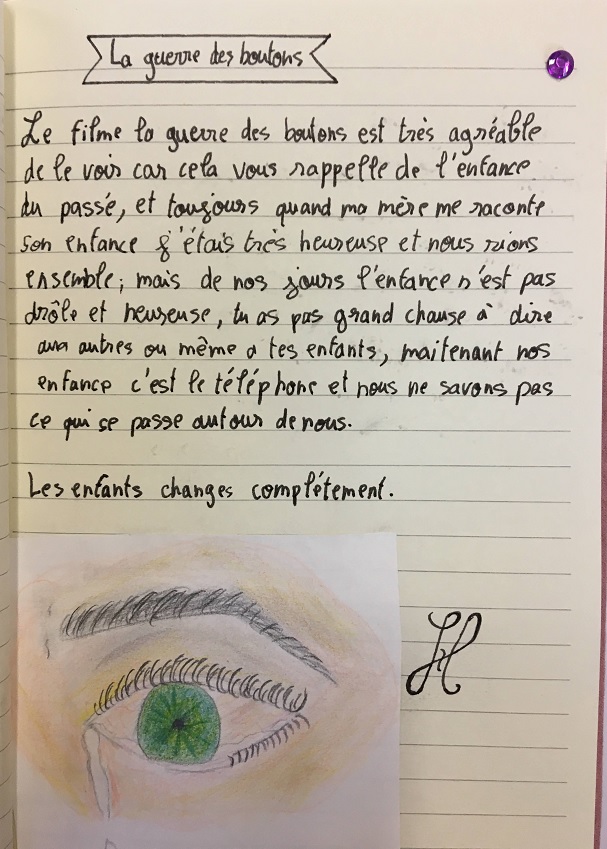 La guerre des boutons
Le filme la guerre des boutons est très agréable
de le voir car cela vous rappelle de l'enfance
du passé, et toujours quand ma mère me raconte
son enfance j'étais très heureuse et nous rions
ensemble; mais de nos jours l'enfance n'est pas
drôle et heureuse, tu as pas grand chause à dire
aux autres ou même a tes enfants, maitenant nos
enfance c'est le téléphone et nous ne savons pas
ce qui se passe autour de nous.
Les enfants changes complétement.